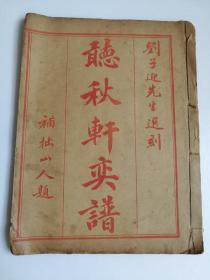 劉子延先生選刻
聽秋軒弈譜
補拙山人題